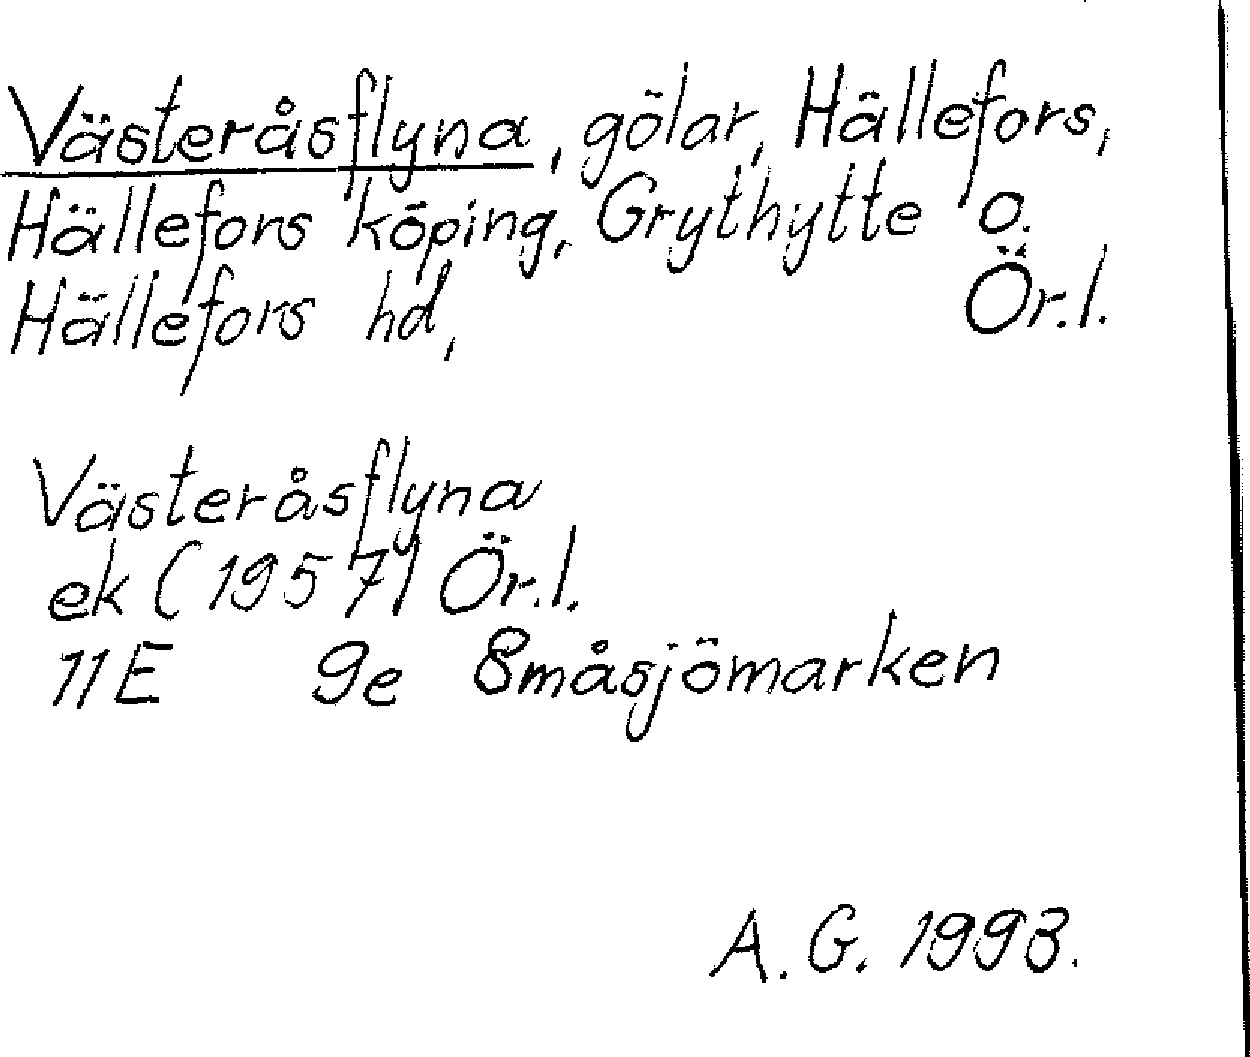 Västeråsflyna, gölar, Hällefors,
Hällefors köping, Grythytte o.
Hällefors hd, Ör.l.
Västeråsflyna
ek (1957) Ör.l.
11E 9e Småsjömarken
A.G. 1993.